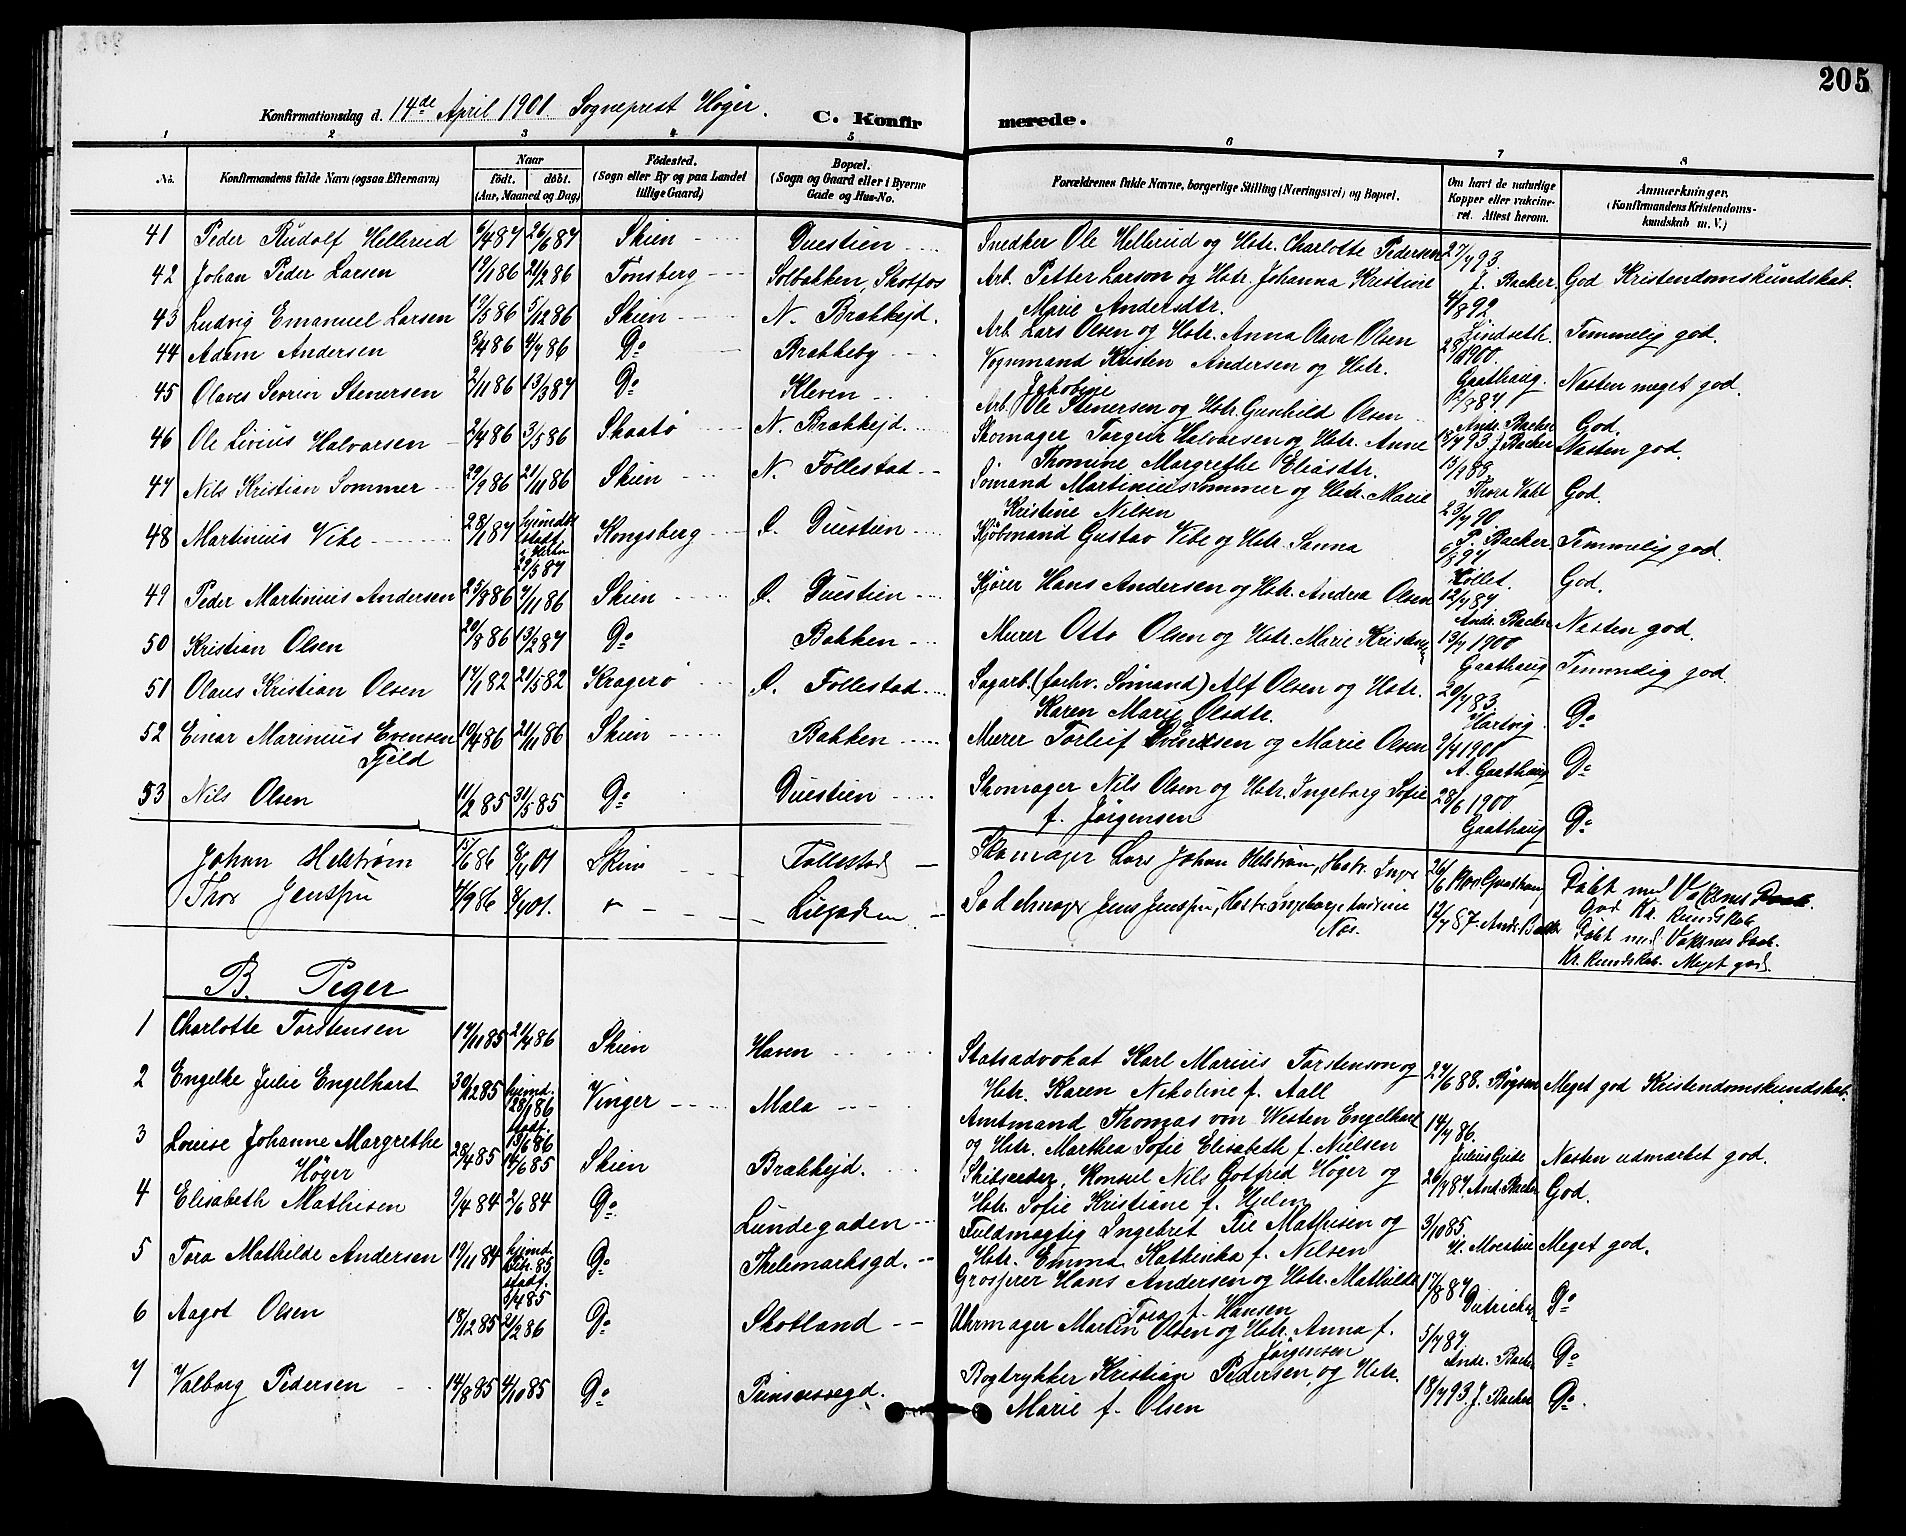 205
Konfirmationsdag d. 14de April 1901. Sogneprest Höger. C. Konfirmerede.
1 2 3 4 5 6 7 8
No. Konfirmandens fulde Navn (ogsaa Efternavn) Naar födt. döbt. (Aar, Maaned og Dag) Födested. (Sogn eller By og paa Landet tillige Gaard) Bopæl. (Sogn og Gaard eller i Byerne Gade og Hus-No. Forældrenes fulde Navne, borgerlige Stilling (Næringsvei) og Bopæl. Om havt de naturlige Kopper eller vakcineret. Attest herom. Anmærkninger. (Konfirmandens Kristendomskundskab m. V.)
41 Peder Rudolf Hellerud 6/4 87 26/6 87 Skien Duestien Snedker Ole Hellerud og Hstr. Charlotte Pedersen 27/7 93 J. Backer. God Kristendomskundskab.
42 Johan Peder Larsen 19/1 86 21/2 86 Tönsberg Solbakken, Skotfos Arb. Petter Larson og Hstr. Johanna Kristine
Marie Andersdtr. 4/8 92 Lindseth. Temmelig god.
43 Ludvig Emanuel Larsen 19/5 86 5/12 86 Skien N. Brækkejd. Arb. Lars Olsen og Hstr. Anna Olava Olsen
44 Adam Andersen 3/4 86 4/7 86 Do Brækkeby Vognmand Kristen Andersen og Hstr.
Jakobine 28/1 1900. Gaathaug. Næsten meget god.
45 Olaves Severin Stenersen 2/11 86 13/3 87 Do Kleven Arb. Ole Stenersen og Hstr. Gunhild Olsen 12/8 87. Andr. Backer God.
46 Ole Livius Halvorsen 2/4 86 3/5 86 Skaatö N. Brækkejd. Skomager Torgeir Halvorsen og Hstr. Anne
Thomine Margrethe Eliasdtr. 18/7 93 J. Backer Næsten god.
47 Nils Kristian Sommer 29/9 86 21/11 86 Skien N. Follestad Sömand Martinius Sommer og Hstr. Marie
Kristine Nilsen 15/9 88 Thora Vahl God.
48 Martinius Vibe 28/1 87 hjemdöbt stadf. i Kirken 29/5 87 Kongsberg Ö. Duestien Kjöbmand Gustav Vibe og Hstr. Sanna 23/7 90 P. Backer. Temmelig god.
49 Peder Martinius Andersen 25/8 86 7/11 86 Skien Ö. Duestien Kjörer Hans Andersen og Hstr. Andrea Olsen 6/8 94 Kollet. God.
50 Kristian Olsen 20/8 86 13/2 87 Do Bakken Murer Otto Olsen og Hstr. Marie Kristensen 12/7 87 Andr. Backer Næsten god.
51 Olaus Kristian Olsen 17/1 82 21/5 82 Kragerö Ö. Follestad Sagarb. (forhv. Sömand) Alf Olsen og Hstr. 19/7 1900 Gaathaug Temmelig god.
Karen Marie Olsdtr. 20/7 83. Hartvig. Do
52 Einar Marinius Evensen 10/4 86 21/11 86 Skien Bakken Murer Torleif Evensen og Marie Olsen 2/4 1901 A. Gaathaug Do
Fjeld
53 Nils Olsen 11/2 85 31/5 85 Do Duestien Skomager Nils Olsen og Hstr. Ingeborg Sofie
f. Jörgensen 28/6 1900 Gaathaug Do
Johan Helström 15/6 86 8/4 01 Skien Follestad Skomager Lars Johan Helström, Hstr. Inger 26/6 1900 Gaathaug Döbt med Voksnes Daab.
God Kr. kundskab.
Thor Jensen 4/9 86 8/4 01. Sadelmager Jens Jensen, Hstr. Ingeborg
12/7 87. Andr. Backer Döbt med Voksnes Daab.
Kr. kundskab. Meget god.
B. Piger
1 Charlotte Torstensen 17/11 85 21/4 86 Skien Haven Statsadvokat Karl Marius Torstenson og
Hstr. Karen Nikoline f. Aall 27/6 88. Bögsen Meget god Kristendomskundskab.
2 Engelke Julie Engelhart 30/12 85 hjemd. 28/1 86 stadf. 13/6 86 Vinger Mæla Amtmand Thomas von Westen Engelhart
og Hstr. Marthea Sofie Elisabeth f. Nielsen 14/7 86. Julius Gude Næsten udmærket god.
3 Louise Johanne Margrethe 28/4 85 14/6 85 Skien Brækkejd. Skibsreder, Konsul Nils Gotfred Höger og
Höger Hstr. Sofie Kristiane f. Hjelm 26/7 87 And. Backer God.
4 Elisabeth Mathisen 9/4 84 2/6 84 Do Lundegaden Fuldmægtig Ingebret Tie Mathisen og
Hstr. Emma Kathinka f. Nilsen 3/10 85. H. Moestue Meget god.
5 Tora Mathilde Andersen 19/11 84 hjemd. 85 stadf. 3/4 85 Do Thelemarksgd. Grosserer Hans Andersen og Hstr. Mathilde
Tora f. Hansen 17/8 87 Dietrichs Do
6 Aagot Olsen 18/12 85 21/2 86 Do Skotland Uhrmager Martin Olsen og Hstr. Anna f.
Jörgensen 5/7 87. Andr. Backer Do
7 Valborg Pedersen 14/8 85 4/10 85 Do Prinsessegd. Bogtrykker Kristian Pedersen og Hstr.
Marie f. Olsen 18/7 93. J. Backer Do